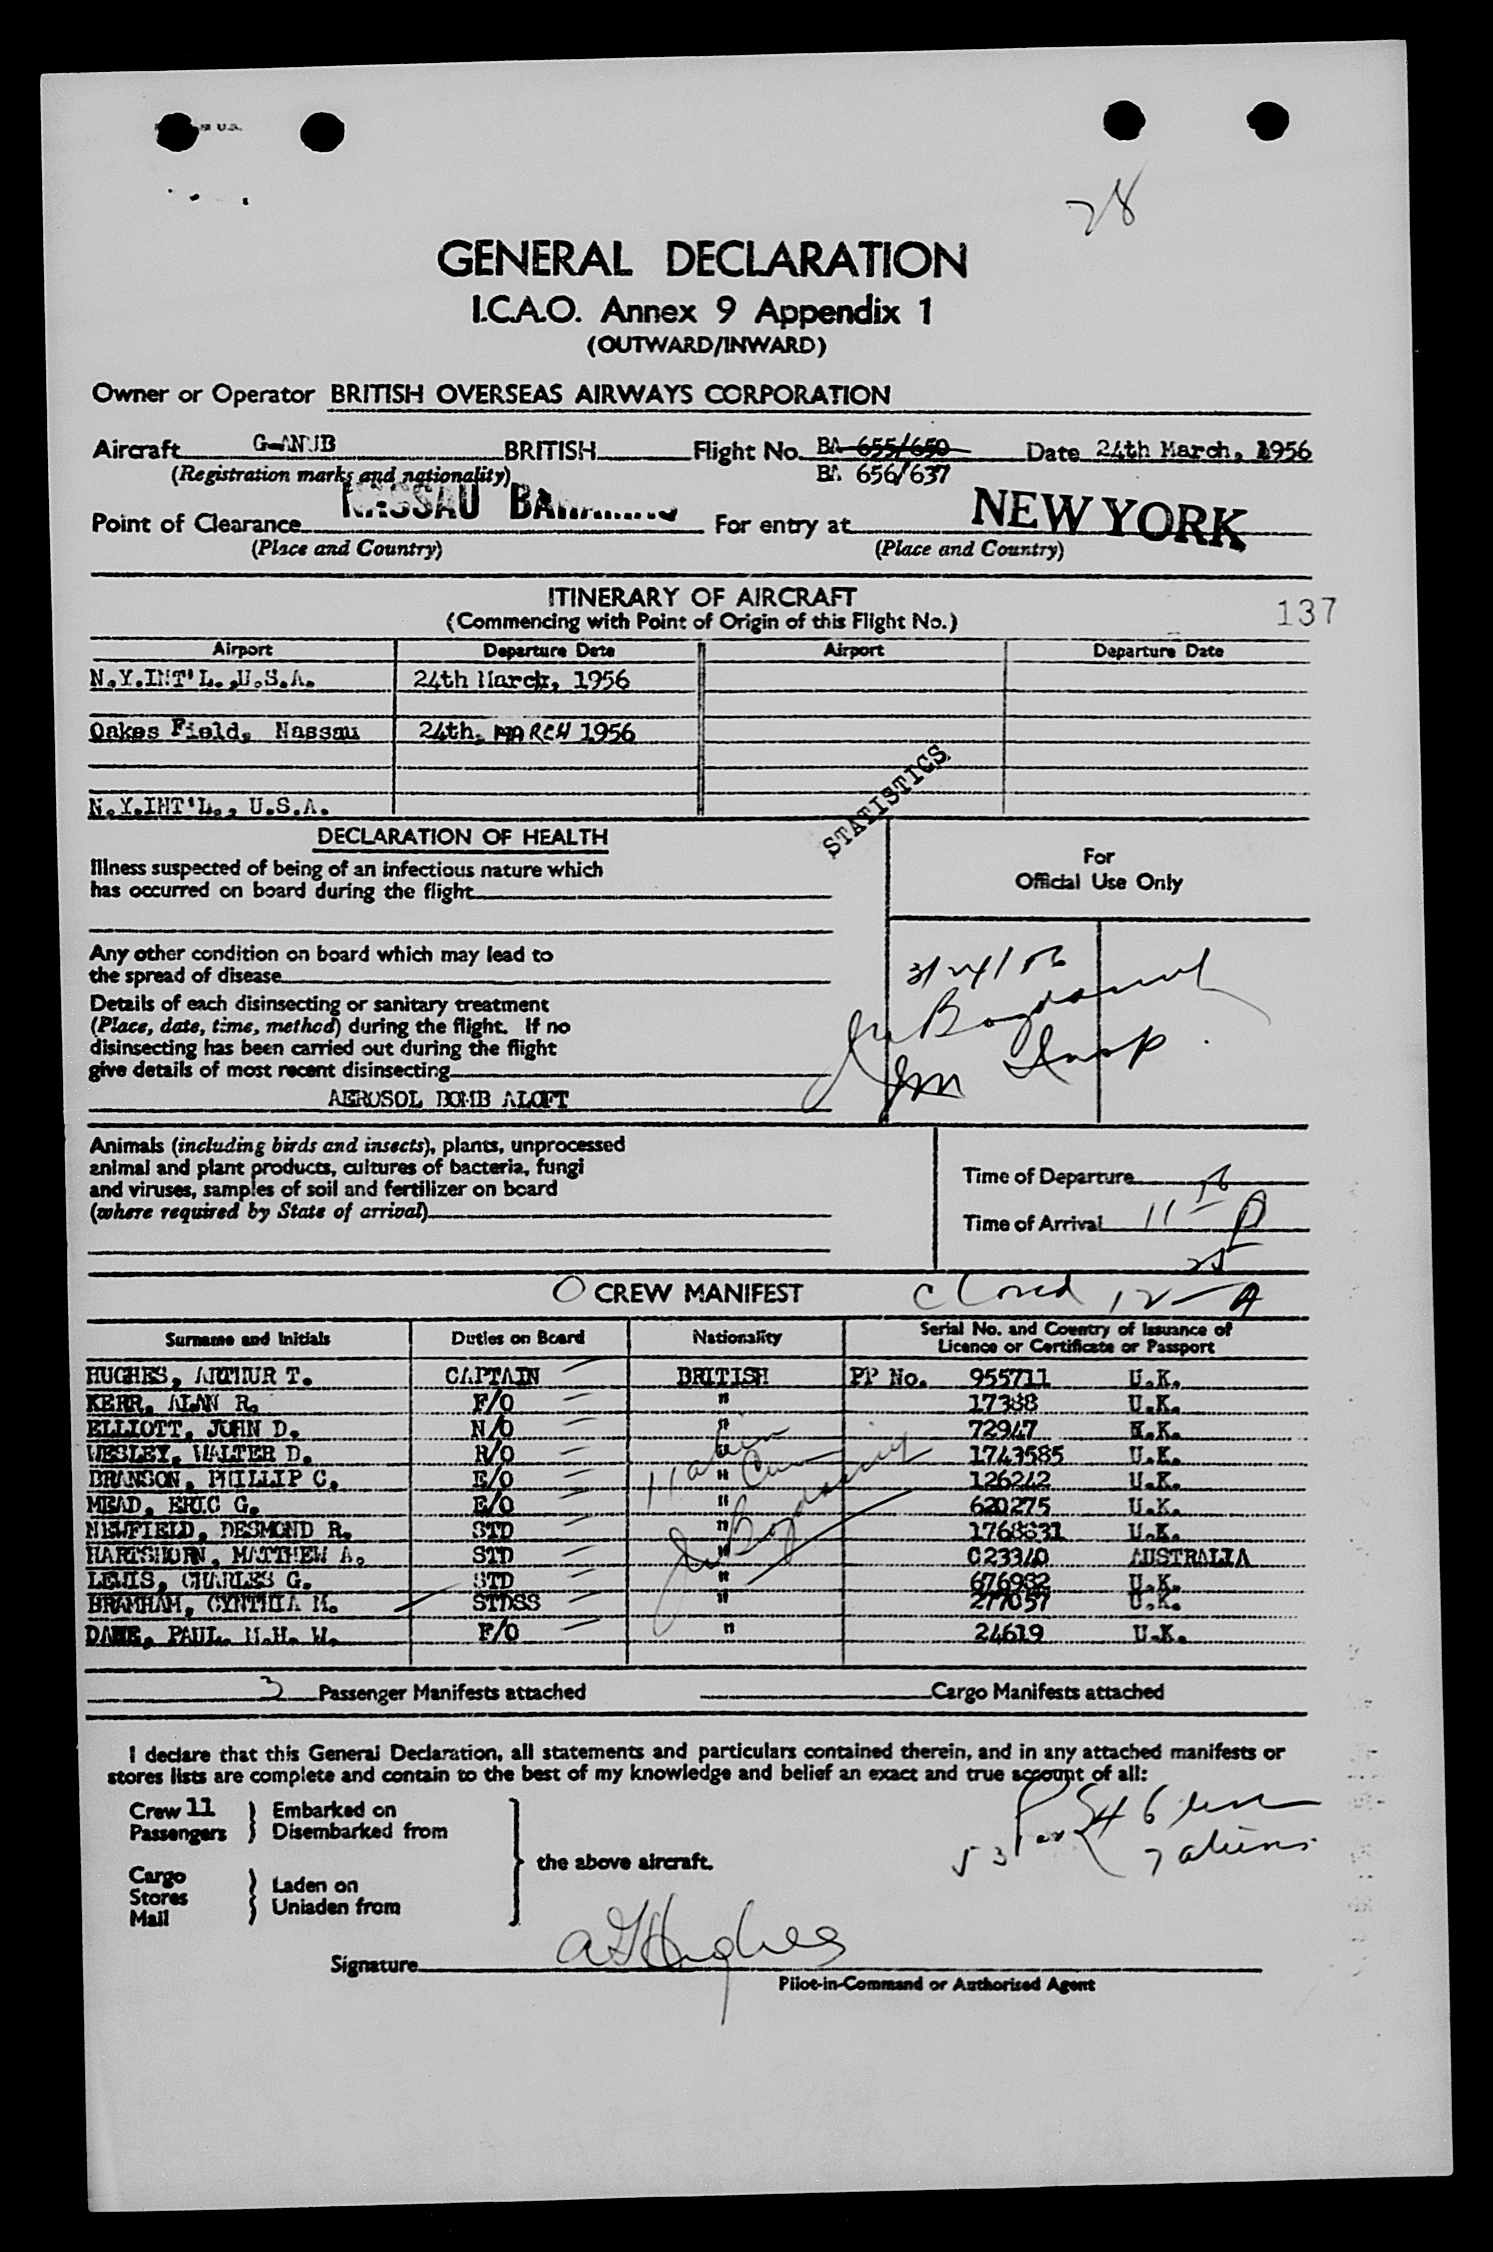 78
GENERAL DECLARATION
I.C.A.O. Annex 9 Appendix 1
(OUTWARD/INWARD)
Owner or Operator BRITISH OVERSEAS AIRWAYS CORPORATION
Aircraft G-ANUB BRITISH Flight No. BA 655/650 Date 24th March, 1956
(Registration marks and nationality) BA 656/637
Point of Clearance NASSAU For entry at NEW YORK
(Place and Country) (Place and Country)
ITINERARY OF AIRCRAFT
(Commencing with Point of Origin of this Flight No.)
137
Airport Departure Date Airport Departure Date
N.Y.INT'L.,U.S.A. 24th March, 1956
Oakes Field, Nassau 24th, MARCH 1956
N.Y.INT'L., U.S.A.
STATISTICS
DECLARATION OF HEALTH
Illness suspected of being of an infectious nature which
has occurred on board during the flight
For
Official Use Only
Any other condition on board which may lead to
the spread of disease
3/24/56
Details of each disinsecting or sanitary treatment
(Place, date, time, method) during the flight. If no
disinsecting has been carried out during the flight
give details of most recent disinsecting
AEROSOL BOMB ALOFT
Imm Insp.
Animals (including birds and insects), plants, unprocessed
animal and plant products, cultures of bacteria, fungi
and viruses, samples of soil and fertilizer on board
(where required by State of arrival)
Time of Departure
Time of Arrival 11 16 P
CREW MANIFEST
Closed 12 25 A
Surname and Initials Duties on Board Nationality Serial No. and Country of Issuance of
Licence or Certificate or Passport
HUGHES, ARTHUR T. CAPTAIN BRITISH PP No. 955711 U.K.
KERR, ALAN R. F/O " 17388 U.K.
ELLIOTT, JOHN D. N/O " 72947 U.K.
WESLEY, WALTER D. R/O " 1743585 U.K.
BRANSON, PHILLIP C. E/O " 126242 U.K.
MEAD, ERIC G. E/O " 620275 U.K.
NEWFIELD, DESMOND R. STD " 1768831 U.K.
HARTSHORN, MATTHEW A. STD " C23340 AUSTRALIA
LEWIS, CHARLES G. STD " 676982 U.K.
BRAMHAM, CYNTHIA M. STDSS " 277057 U.K.
DANE, PAUL. M.H. W. F/O " 24619 U.K.
11 alien
Crew
3 Passenger Manifests attached Cargo Manifests attached
I declare that this General Declaration, all statements and particulars contained therein, and in any attached manifests or
stores lists are complete and contain to the best of my knowledge and belief an exact and true account of all:
Crew 11 Embarked on
Passengers Disembarked from
the above aircraft.
Cargo
Stores
Mail
Laden on
Unladen from
53 Pax
46
7 aliens
Signature A T Hughes
Pilot-in-Command or Authorised Agent